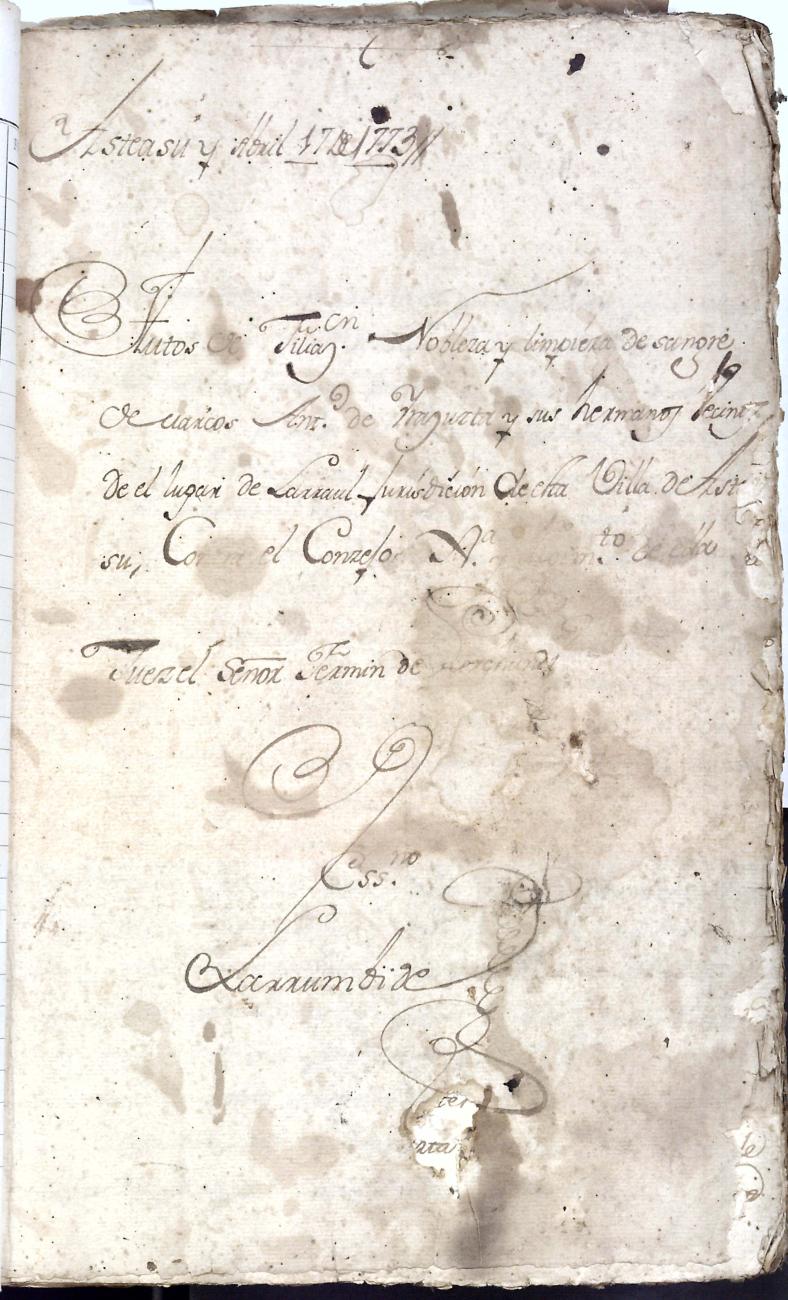 Asteasu y Abril 17 de 1773//
Autos de Filiaz.on Nobleza y limpieza de sangre
de Marcos Ant.o de Yrazusta y sus hermanos Vecinos
de el lugar de Larraul Jurisdicion de esta Villa de Astea
su, Contra el Conzejo de ella
Juez el Señor Fermin de
Ess.no
Larrumbide